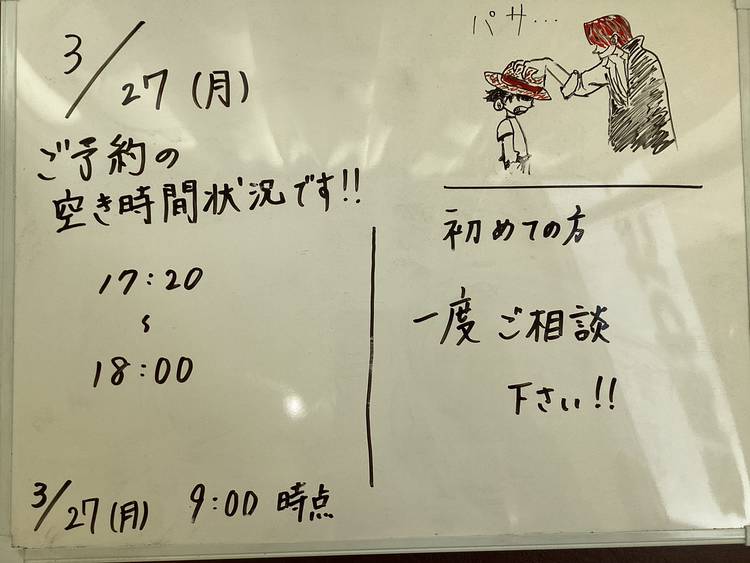 3/27(月)
ご予約の
空き時間状況です!!
17:20
~
18:00
3/27(月) 9:00 時点
パサ...
初めての方
一度ご相談
下さい!!